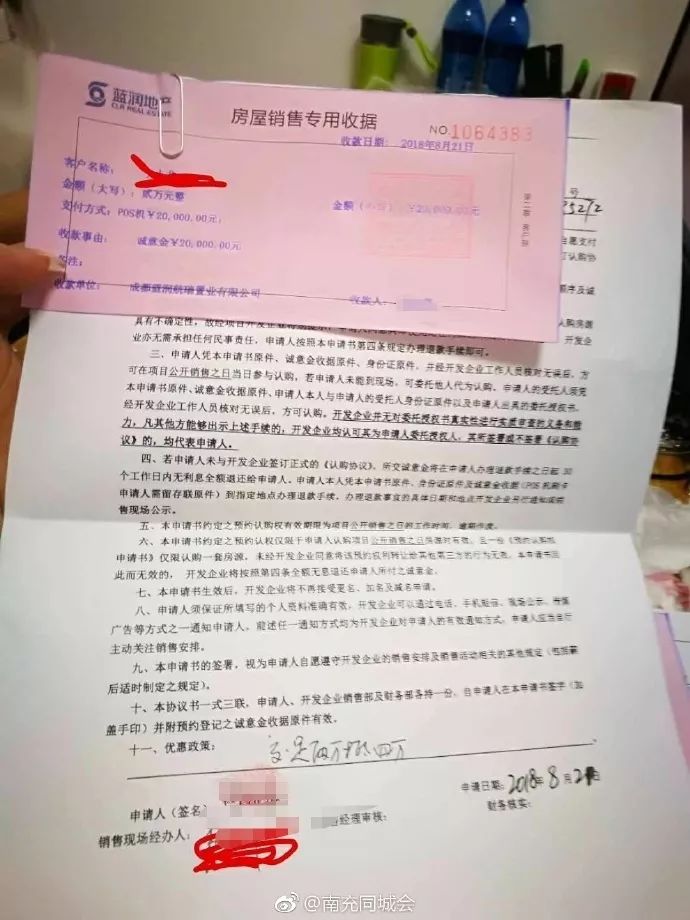 蓝润地产
CLR REAL ESTATE
房屋销售专用收据
NO.1064383
收款日期: 2018年8月21日
客户名称:
金额(大写): 贰万元整
金额(小写):¥20,000.00元
支付方式: POS机¥20,000.00元;
收款事由: 诚意金¥20,000.00元
备注:
收款单位: 成都蓝润航瑞置业有限公司
收款人:
号
自愿支付
订认购协
顺序及诚
认购房源
具有不确定性,故经项目开发企业特别提示,申请人
开发企
业亦无需承担任何民事责任,申请人按照本申请书第四条规定办理退款手续即可。
三、申请人凭本申请书原件、诚意金收据原件、身份证原件,并经开发企业工作人员核对无误后,方
可在项目公开销售之日当日参与认购,若申请人未能到现场,可委托他人代为认购,申请人的受托人须凭
本申请书原件、诚意金收据原件、申请人本人与申请人的受托人身份证原件以及申请人出具的委托授权书,
经开发企业工作人员核对无误后,方可认购。开发企业并无对委托授权书真实性进行实质审查的义务和能
力,凡其他方能够出示上述手续的,开发企业均认可其为申请人委托授权人,其所签署或不签署《认购协
议》的,均代表申请人。
四、若申请人未与开发企业签订正式的《认购协议》,所交诚意金将在申请人办理退款手续之日起 30
个工作日内无利息全额退还给申请人。申请人本人凭本申请书原件、身份证原件及诚意金收据(POS 机刷卡
申请人需留存联原件)到指定地点办理退款手续,办理退款事宜的具体日期和地点开发企业另行通知或销
售现场公示。
五、本申请书约定之预约认购权有效期限为项目公开销售之日的工作时间,逾期作废。
六、本申请书约定之预约认权仅限于申请人认购项目公开销售之日房源时有效,且一份《预约认购
申请书》仅限认购一套房源,未经开发企业同意将该预约权利转让给其他第三方的行为无效。本申请书因
此而无效的, 开发企业将按照第四条全额无息退还申请人所付之诚意金。
七、本申请书生效后,开发企业将不再接受更名、加名及减名申请。
八、申请人须保证所填写的个人资料准确有效,开发企业可以通过电话、手机短信、现场公示、传媒
广告等方式之一通知申请人,前述任一通知方式均为开发企业对申请人的有效通知方式,申请人应当自行
主动关注销售安排。
九、本申请书的签署,视为申请人自愿遵守开发企业的销售安排及销售活动相关的其他规定(包括签
后适时制定之规定)。
十、本协议书一式三联,申请人、开发企业销售部及财务部各持一份,自申请人在本申请书签字(加
盖手印)并附预约登记之诚意金收据原件有效。
十一、优惠政策:
申请日期: 2018年8月21日
申请人(签名)
财务核实:
销售现场经办人:
经理审核:
@南充同城会